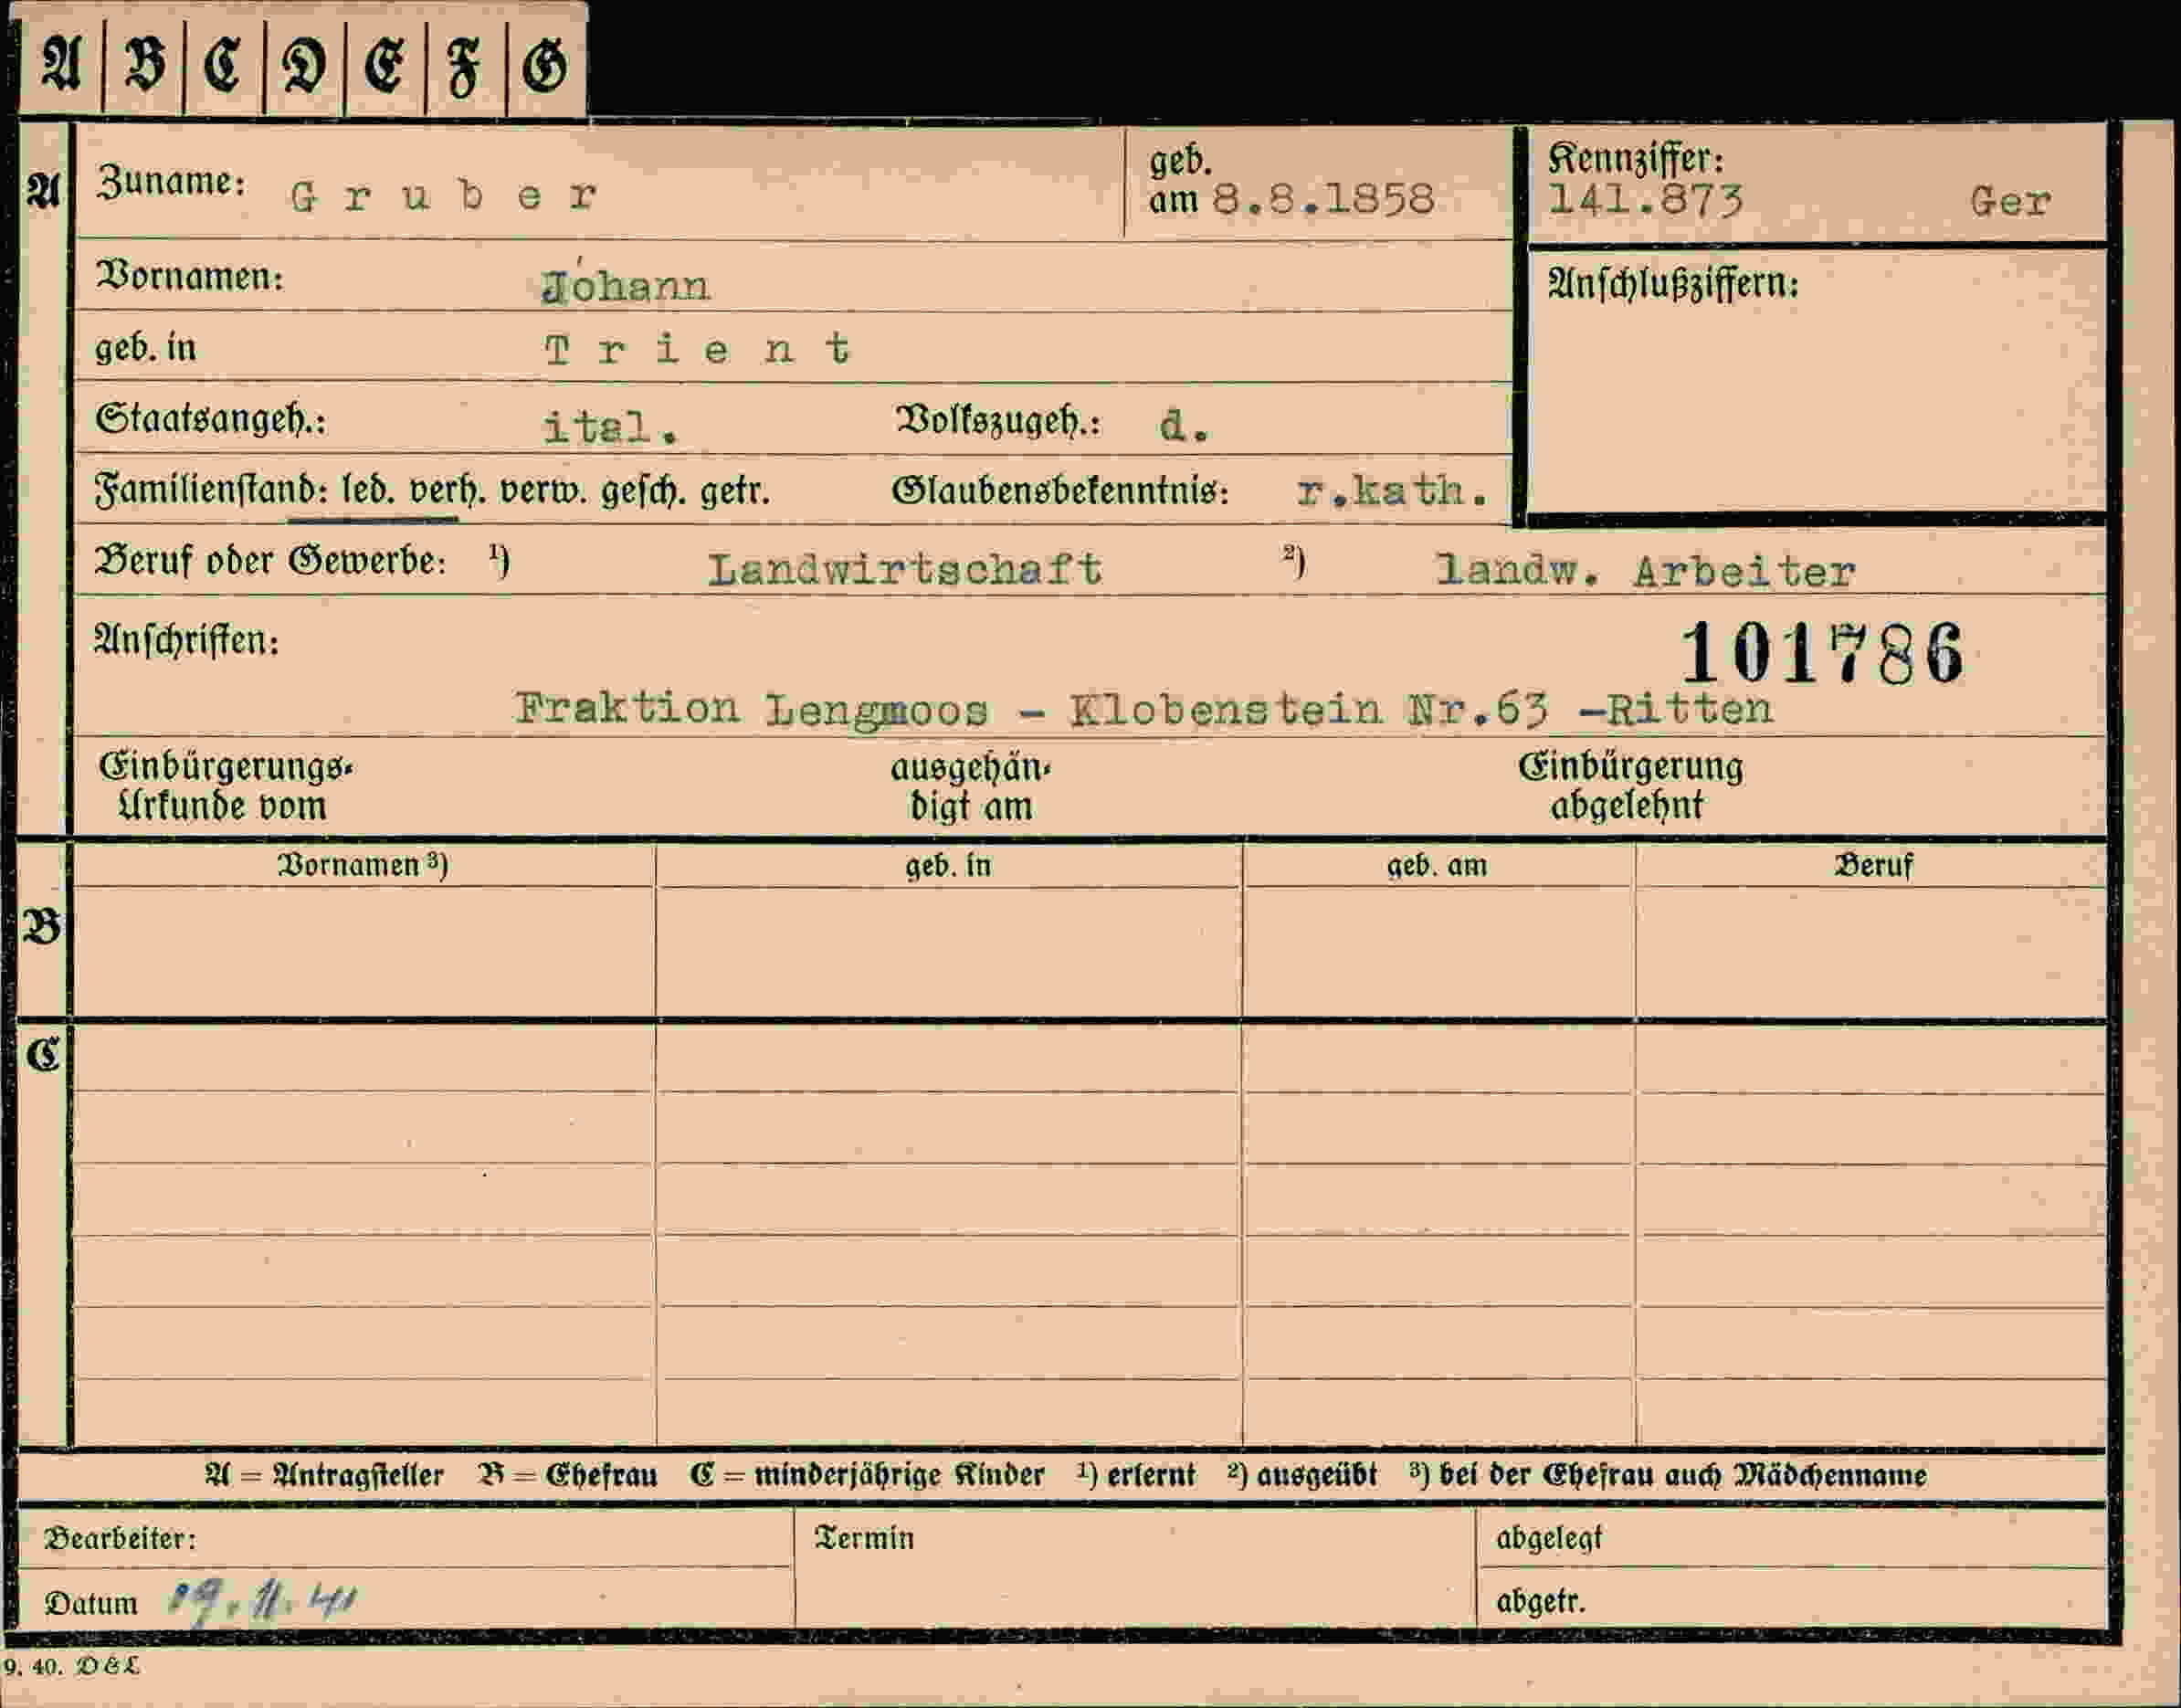 A B C D E F G
A Zuname: Gruber geb. am 8.8.1858 Kennziffer: 141.873 Ger
Vornamen: Johann Anschlußziffern:
geb. in Trient
Staatsangeh.: ital. Volkszugeh.: d.
Familienstand: led. verh. verw. gesch. getr. Glaubensbekenntnis: r.kath.
Beruf oder Gewerbe: ¹) Landwirtschaft ²) landw. Arbeiter
Anschriften: 101786
Fraktion Lengmoos - Klobenstein Nr.63 -Ritten
Einbürgerungs- ausgehän- Einbürgerung
Urkunde vom digt am abgelehnt
Vornamen ³) geb. in geb. am Beruf
B
C
A = Antragsteller B = Ehefrau C = minderjährige Kinder ¹) erlernt ²) ausgeübt ³) bei der Ehefrau auch Mädchenname
Bearbeiter: Termin abgelegt
Datum 19.11.41 abgetr.
9. 40. D & L